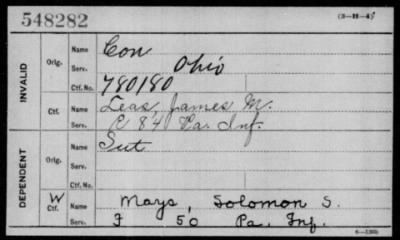 548282
(3-111-4)
INVALID
Orig. Name Con
Serv. Ohio
Ctf. No. 780180
Ctf. Name Leas, James M.
Serv. C 84 Pa. Inf.
DEPENDENT
Orig. Name Sut
Serv.
Ctf. No.
W
Ctf. Name Mays, Solomon S.
Serv. F 50 Pa. Inf.